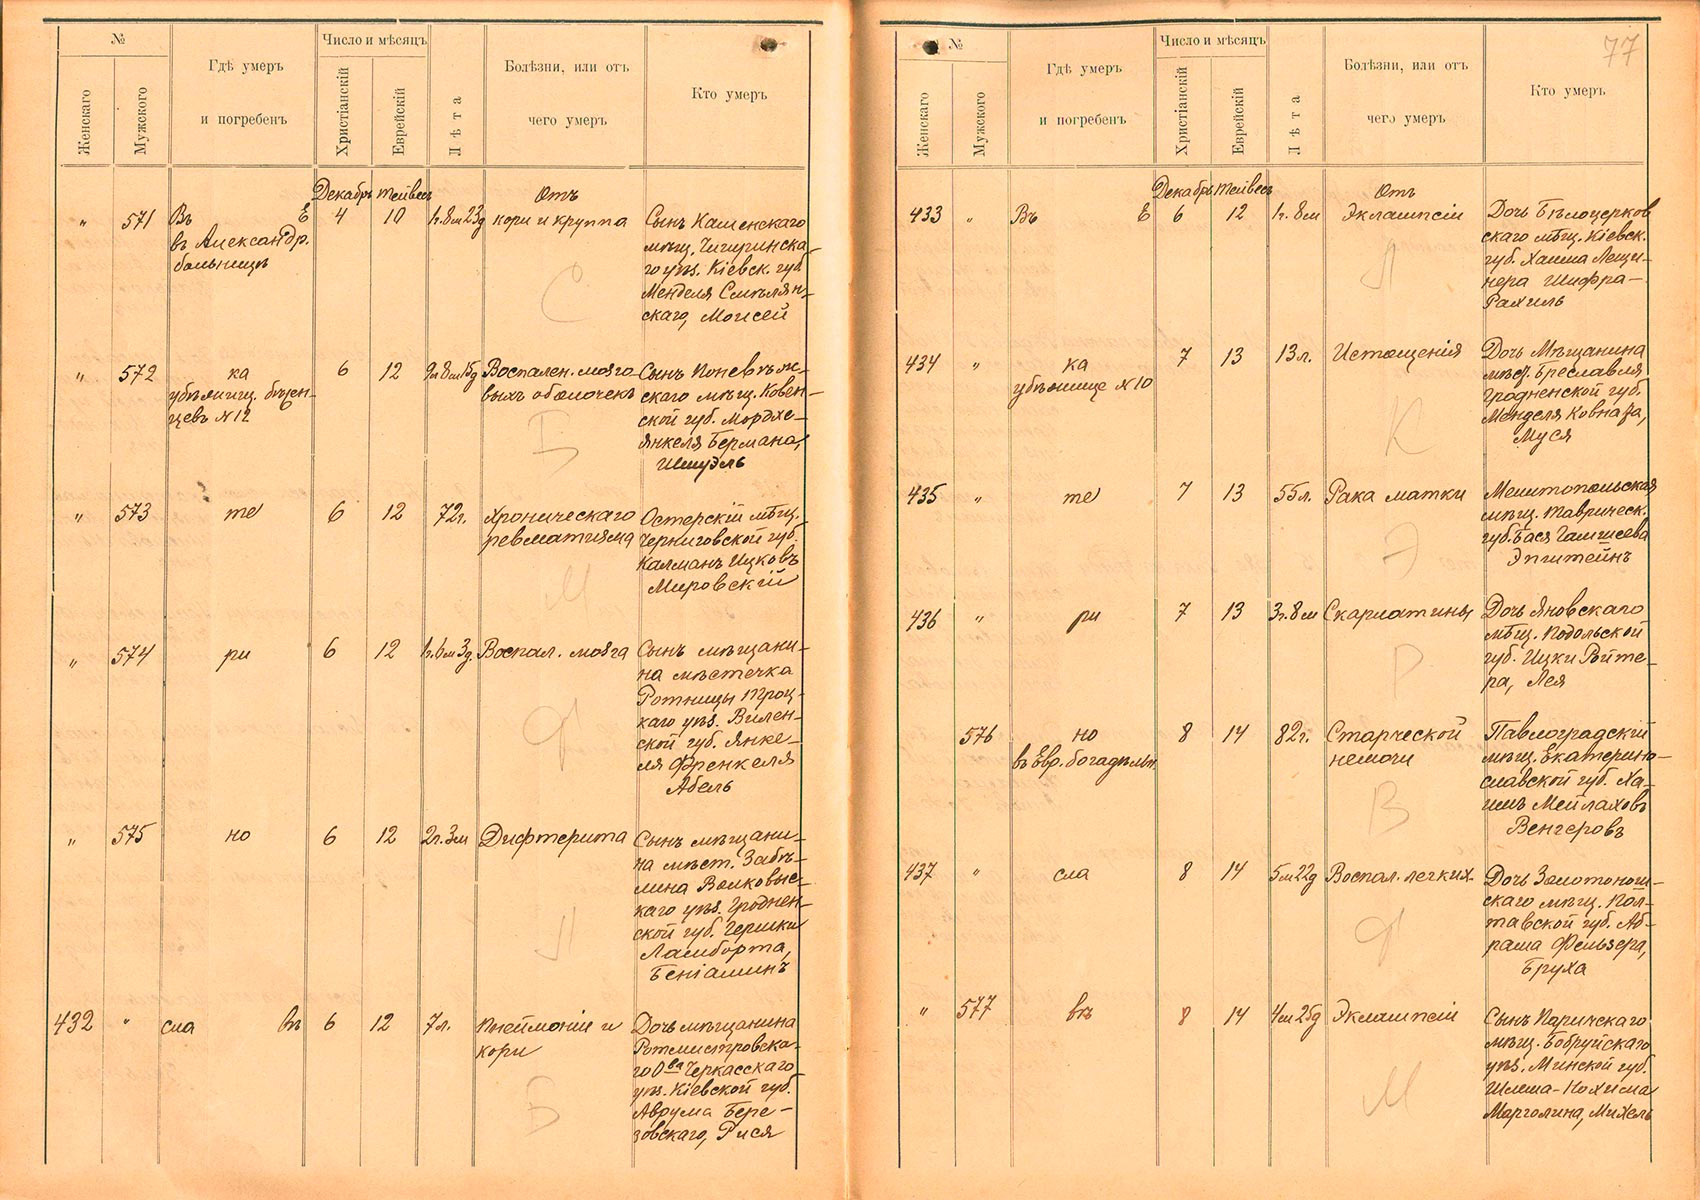 №
Женскаго
Мужскаго
Гдѣ умеръ
и погребенъ
Число и мѣсяцъ
Христіанскій
Еврейскій
Лѣта
Болѣзни, или отъ
чего умеръ
Кто умеръ
Декабрь Тейвесъ
Отъ
" 571
Въ Е
въ Александр.
больницѣ
4 10 1г.8м23д
кори и круппа
Сынъ Каменскаго
мѣщ. Чигиринска-
го уѣз. Кіевск. губ.
Менделя Смѣлян-
скаго, Моисей
С
" 572
ка
убѣжищ. бѣжен-
цевъ №12
6 12
Воспален. мозго
выхъ оболочекъ
Сынъ Поневѣж-
скаго мѣщ. Ковен-
ской губ. Мордхе-
Янкеля Бермана,
Шмуэль
Б
" 573
те
6 12 72г.
Хроническаго
ревматизма
Остерскій мѣщ.
Черниговской губ.
Калманъ Ицковъ
Мировскій
М
" 574
ри
6 12 1г.6м3д.
Воспал. мозга
Сынъ мѣщани-
на мѣстечка
Ротницы Троц-
каго уѣз. Вилен-
ской губ. Янке-
ля Френкеля
Абель
Ф
" 575
но
6 12 2г.3м
Дифтерита
Сынъ мѣщани-
на мѣст. Забѣ-
лина Волковыс-
каго уѣз. Гроднен-
ской губ. Гершки
Ламборта,
Беніаминъ
Л
432 "
сла въ
6 12 7л.
Пнеймоніи и
кори
Дочь мѣщанина
Ротмистровска-
го О-ва Черкасскаго
уѣз. Кіевской губ.
Аврума Бере-
зовскаго, Рися
Б
77
№
Женскаго
Мужского
Гдѣ умеръ
и погребенъ
Число и мѣсяцъ
Христіанскій
Еврейскій
Лѣта
Болѣзни, или отъ
чего умеръ
Кто умеръ
Декабрь Тейвесъ
Отъ
433 "
Въ Е
6 12 1г.8м
Эклампсіи
Дочь Бѣлоцерков
скаго мѣщ. Кіевск.
губ. Хаима Лещи-
нера Шифра-
Рахиль
Л
434 "
ка
убѣжище №10
7 13 13л.
Истощенія
Дочь Мѣщанина
мѣст. Бреславля
Гродненской губ.
Менделя Ковнара,
Муся
К
435 "
те
7 13 55л.
Рака матки
Мелитопольская
мѣщ. Таврическ.
губ. Бася
Эпштейнъ
Э
436 "
ри
7 13 3г.8м
Скарлатины
Дочь Яновскаго
мѣщ. Подольской
губ. Ицки Ройте-
ра, Лея
Р
576
но
въ Евр. богадѣльн.
8 14 82г.
Старческой
немочи
Павлоградскій
мѣщ. Екатерино-
славской губ. Ха-
имъ Мейлаховъ
Венгеровъ
В
437 "
сла
8 14 5м22д
Воспал. легких
Дочь Золотонош-
скаго мѣщ. Пол-
тавской губ. Аб-
рама Фельзера,
Бруха
Ф
" 577
въ
8 14 4м25д
Эклампсіи
Сынъ Паричскаго
мѣщ. Бобруйскаго
уѣз. Минской губ.
Шлема-Нохима
Марголина, Михель
М